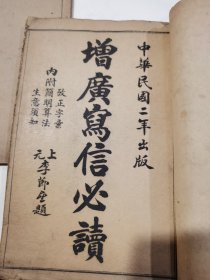 中華民國二年出版
增廣寫信必讀
內附
攷正字彙
簡明算法
生意須知
上元李節齋題